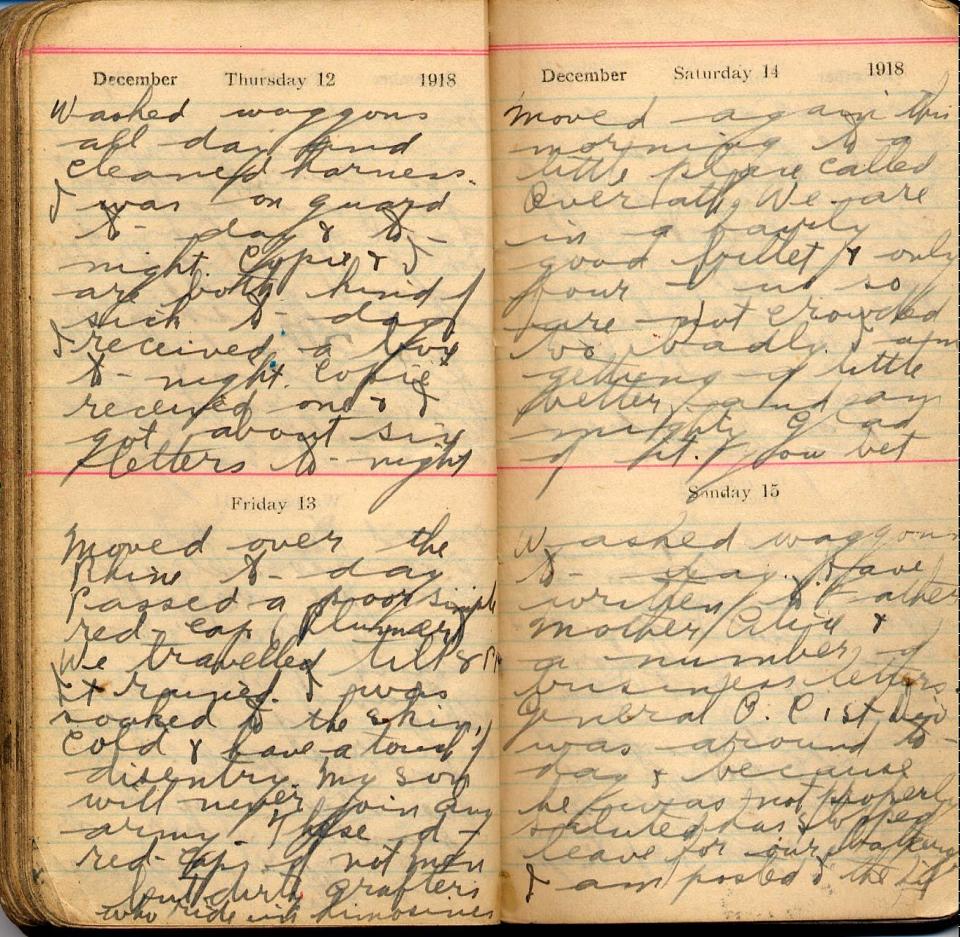 December Thursday 12 1918
Washed waggons
all day and
cleaned harness.
I was on guard
to-day & to-
night. &
are both kind of
sick to-day
I received a box
to-night.
received one & I
got about six
letters to-night
Friday 13
Moved over the
Rhine to-day
Passed a poor simple
red-cap (Plummer)
We travelled till 8 P.M.
it rained. I was
soaked to the skin,
cold & have a touch of
disentry. My son
will never join any
army. These d-
red-caps of not men
but durn grafters
who ride in limosines
December Saturday 14 1918
Moved again this
morning to a
little place called
Overath. We are
in a fairly
good billet & only
four of us so
are not crowded
too badly. I am
getting a little
better and am
mighty glad
of it. you bet
Sunday 15
Washed waggons
to-day. Have
written to Father
Mother Alice &
a number of
business letters.
General O. C 1st Div
was around to-
day & because
he was not properly
saluted has stopped
leave for our
I am posted to the